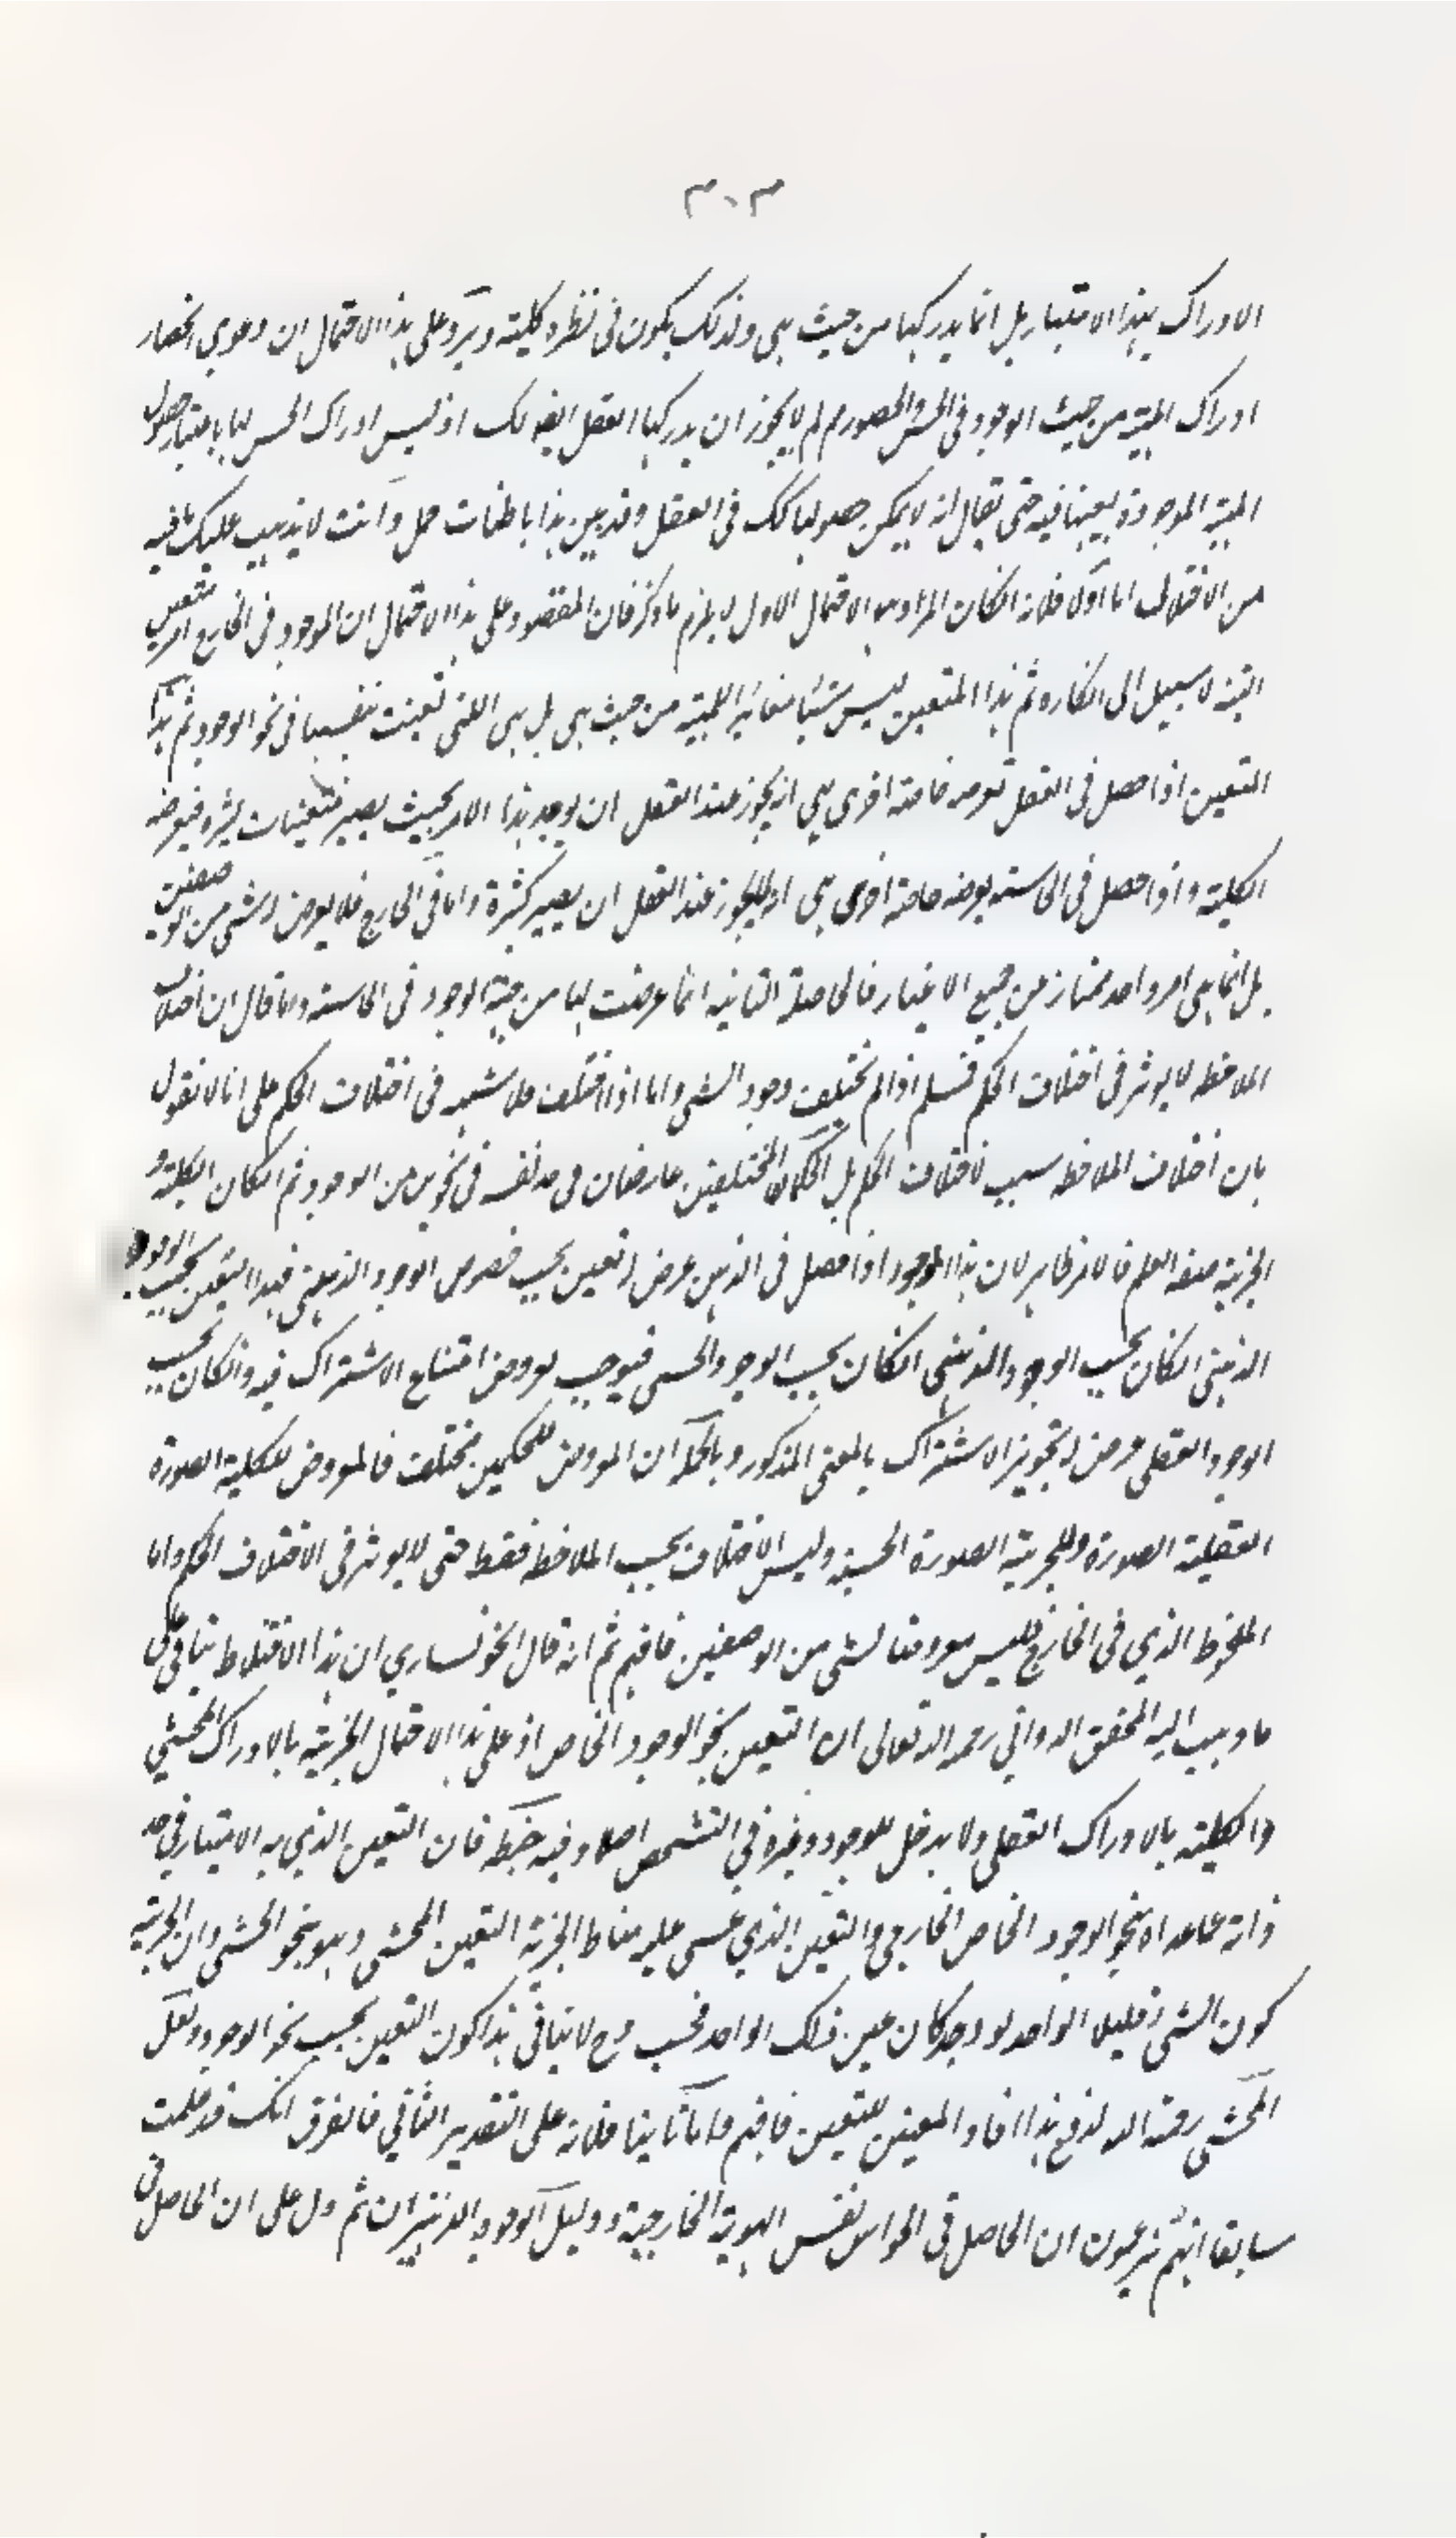 ٣٠٣
الادراك بهذا الاعتبار بل انما يدركها من حيث هي ولذلك يكون في نظره كلية ويرد على هذا الاحتمال ان دعوى انحصار
ادراك المهية من حيث الوجود في الحس والحضور مم لم لا يجوز ان يدركها العقل ايضا كك اذ ليس ادراك الحس لها باعتبار حصول
المهية الموجودة بعينها فيه حتى يقال انه لا يمكن حصولها كك في العقل وقد بين هذا باطناب ممل وانت لا يذهب عليك ما فيه
من الاختلال اما اولا فلانه انكان المراد به الاحتمال الاول لا يلزم ما ذكر فان المقصود على هذا الاحتمال ان الموجود في الخارج امر متعين
البتة لا سبيل الى انكاره ثم هذا المتعين ليس شيئا مغائر اللمهية من حيث هي بل هي اللتي تعينت بنفسها في نحو الوجود ثم هذا
التعين اذا حصل في العقل تعرضه خاصة اخرى هي انه يجوز عند العقل ان يوجد هذا الامر بحيث يصير متعينات كثيرة فيعرضه
الكلية واذا حصل في الحاسته يعرضه خاصة اخرى هي انه لا يجوز عند العقل ان يصير كثيرة واما في الخارج فلا يعرض له شي من الوصفين
بل انما هي امر واحد ممتاز عن جميع الاغيار فالخاصة الثانية انما عرضت لها من جهة الوجود في الحاسته وما قال ان اختلاف
الملاحظه لا يوثر في اختلاف الحكم فمسلم اذا لم تختلف وجود الشي واما اذا اختلف فلا شبهه في اختلاف الحكم على انا لا نقول
بان اختلاف الملاحظه سبب لاختلاف الحكم بل الحكمان المختلفين عارضان في حد نفسه في نحوين من الوجود ثم انكان الكلية و
الجزئية صفه العلم فالامر ظاهر لان هذا الموجود اذا حصل في الذهن عرض له تعين بحسب خصوص الوجود الذهني فهذا التعين بحسب الوجود
الذهني انكان بحسب الوجود الذهني انكان بحسب الوجود الحسي فيوجب عروض امتناع الاشتراك فيه وانكان بحسب
الوجود العقلي عرض له تجويز الاشتراك بالمعنى المذكور وبالجملة ان المعروض للحكمين مختلف فالمعروض للكلية الصورة
العقلية الصورة وللجزئية الصورة الحسية وليس الاختلاف بحسب الملاحظه فقط حتى لا يوثر في الاختلاف الحكم واما
الملحوظ الذي في الخارج فليس معروضا لشي من الوصفين فافهم ثم انه قال الخونساري ان هذا الاختلاط ينافي على
ما ذهب اليه المحقق الدواني رحمه الله تعالى ان التعين بنحو الوجود الخاص اذ على هذا الاحتمال الجزئية بالادراك الحسي
والكلية بالادراك العقلي ولا يدخل للوجود وغيره في التشخص اصلا وفيه خبط فان التعين الذي به الامتياز في حد
ذاته عما عداه بنحو الوجود الخاص الخارجي والتعين الذي عسى عليه مناط الجزئية التعين الحسي وهو بنحو الحسي وان الجزئية
كون الشي تقليله الواحد لو وجد كان عين ذلك الواحد فحسب وح لا ينافي هذا كون التعين بحسب نحو الوجود ولعل
المحشي رحمة الله لدفع هذا افاد المعنين للتعين فافهم واما ثانيا فلانه على التقدير الثاني فالفرق انك قد علمت
سابقا انهم يزعمون ان الحاصل في الحواس نفس الهوية الخارجية ودليل الوجود الذهني ان تم دل على ان الحاصل في